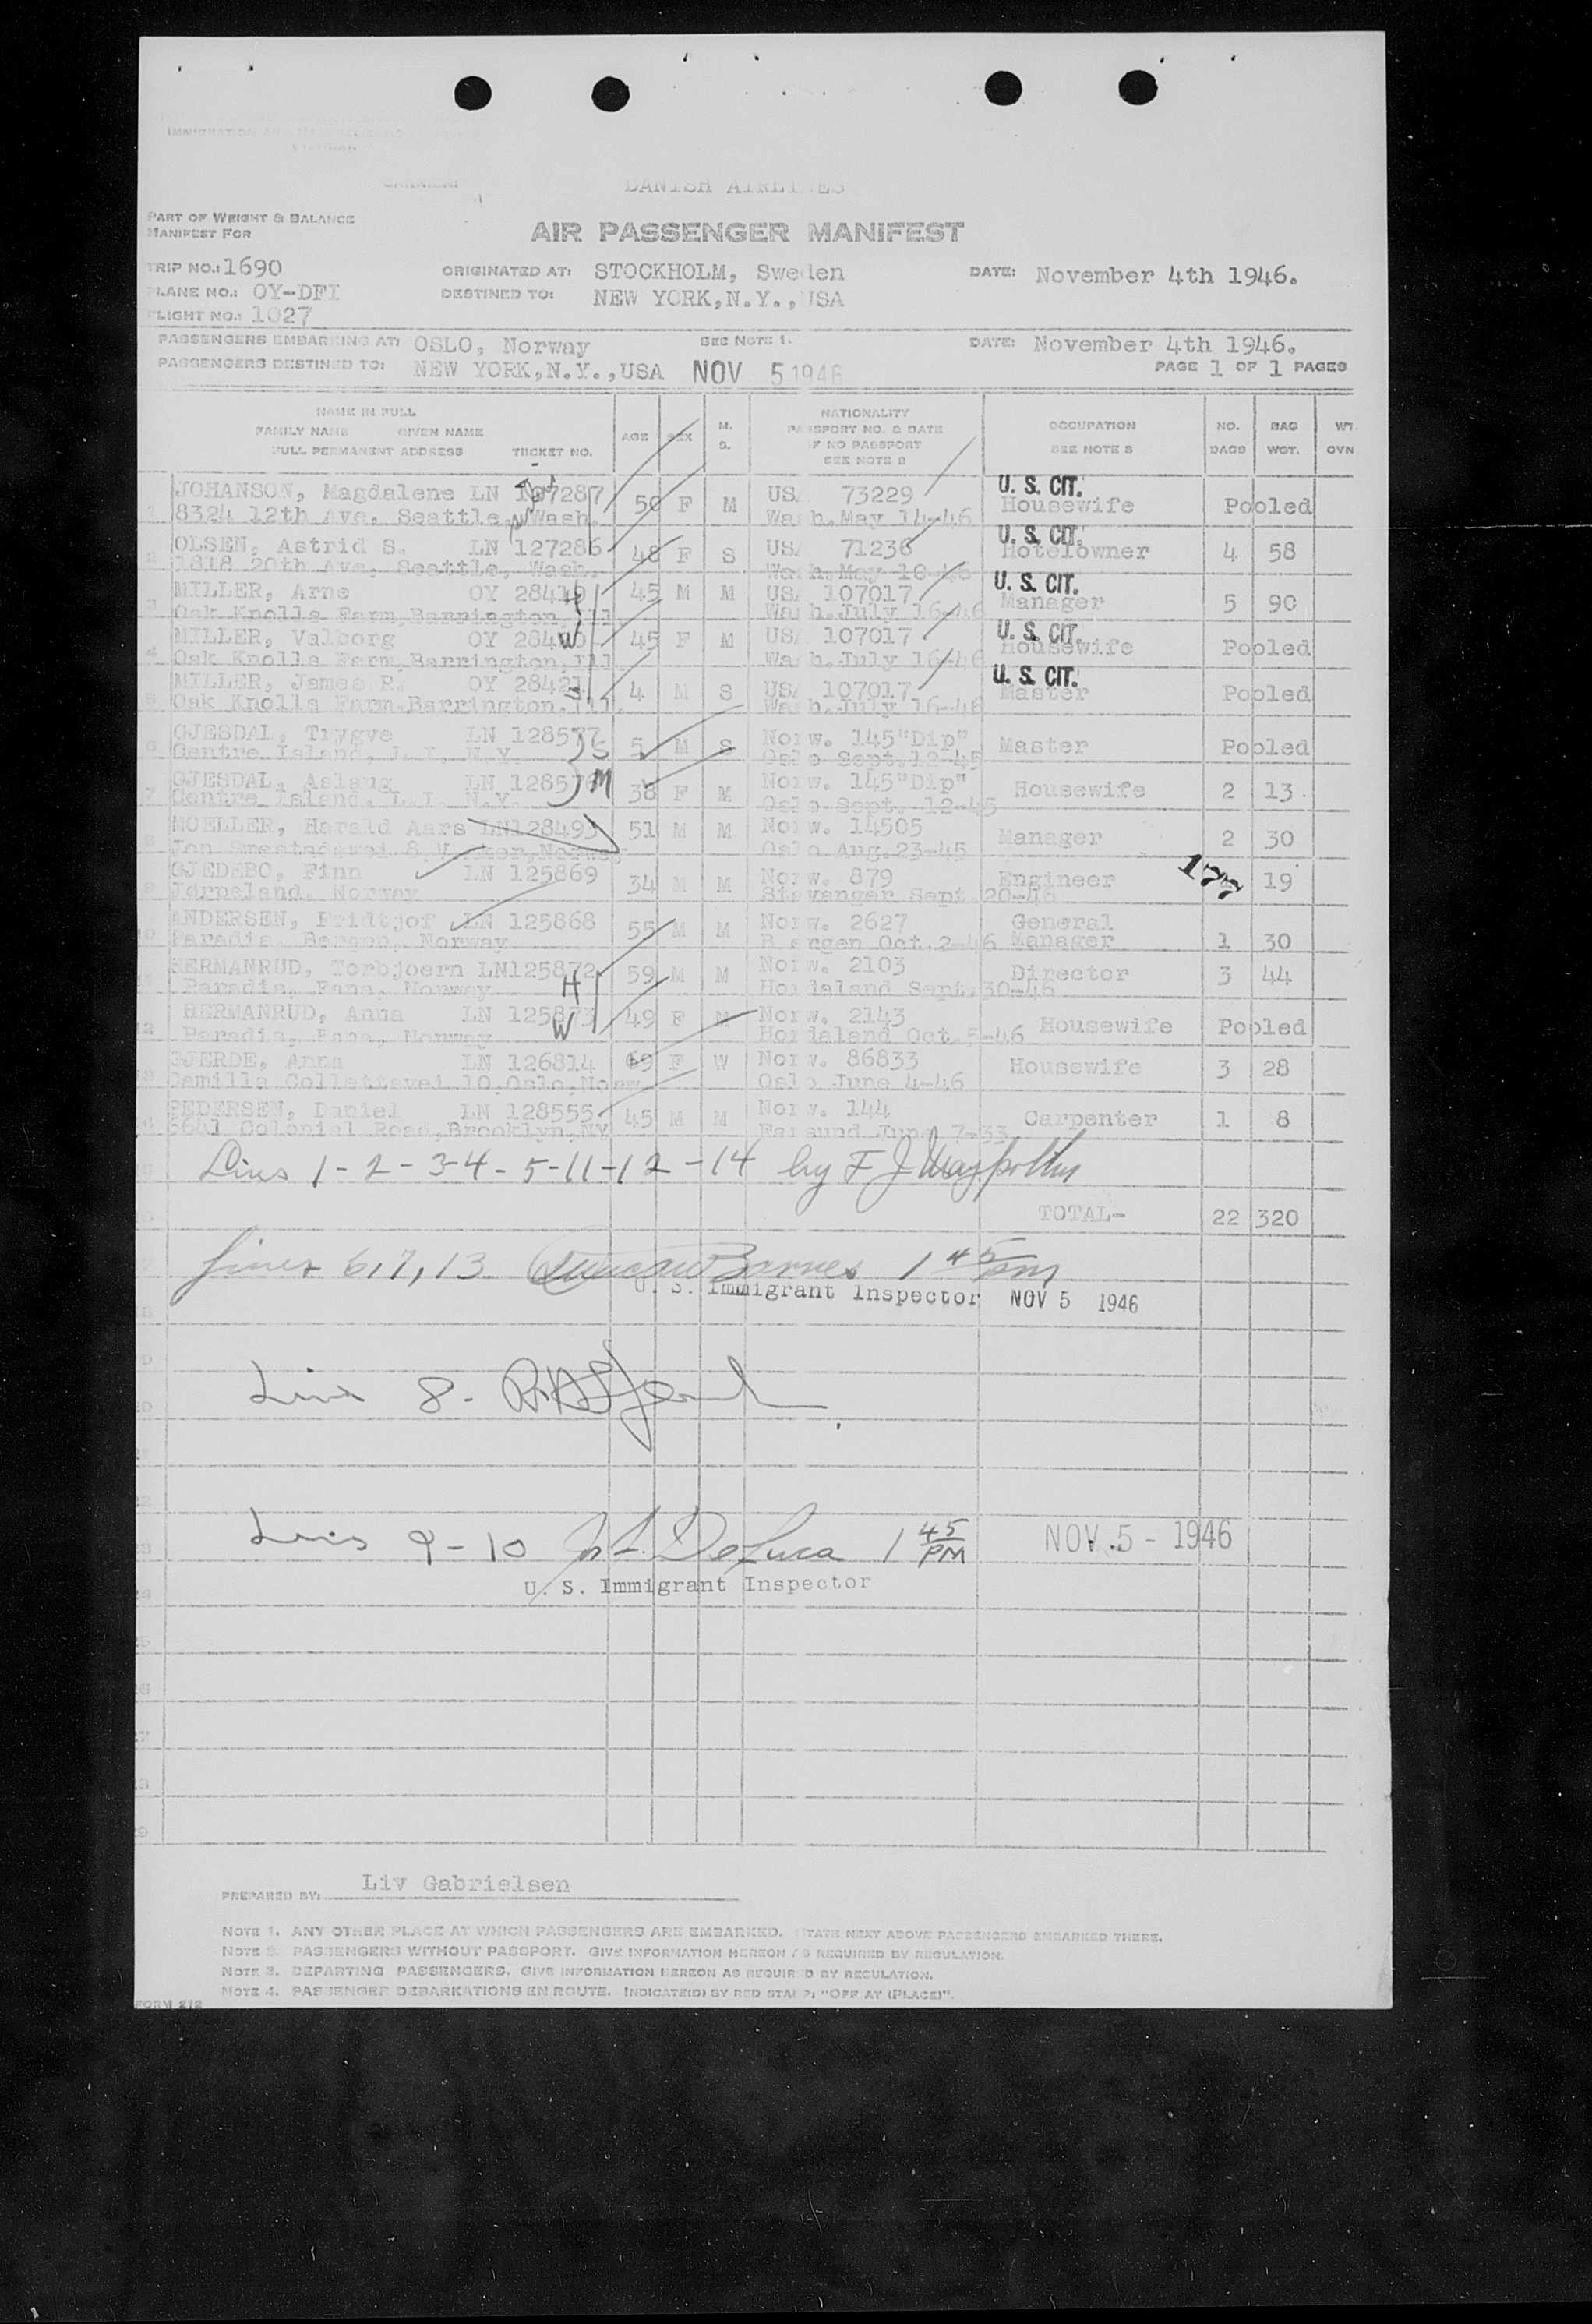 DANISH AIRLINES
PART OF WEIGHT & BALANCE
MANIFEST FOR
AIR PASSENGER MANIFEST
TRIP NO.: 1690 ORIGINATED AT: STOCKHOLM, Sweden DATE: November 4th 1946.
PLANE NO.: OY-DFI DESTINED TO: NEW YORK, N.Y., USA
FLIGHT NO.: 1027
PASSENGERS EMBARKING AT: OSLO, Norway SEE NOTE 1. DATE: November 4th 1946.
PASSENGERS DESTINED TO: NEW YORK, N.Y., USA NOV 5 1946 PAGE 1 OF 1 PAGES
NAME IN FULL NATIONALITY
FAMILY NAME GIVEN NAME AGE SEX M. S. PASSPORT NO. & DATE OCCUPATION NO. BAG WT.
FULL PERMANENT ADDRESS TICKET NO. IF NO PASSPORT SEE NOTE 2 SEE NOTE 3 BAGS WGT. OVN
JOHANSON, Magdalene LN 127287 50 F M USA 73229 U. S. CIT. Housewife Pooled
8324 12th Ave. Seattle, Wash. Wash. May 14-46
OLSEN, Astrid S. LN 127286 48 F S USA 71236 U. S. CIT. Hotelowner 4 58
1818 20th Ave, Seattle, Wash. Wash. May 10-46
MILLER, Arne OY 28419 H 45 M M USA 107017 U. S. CIT. Manager 5 90
Oak Knolls Farm, Barrington, Ill Wash. July 16-46
MILLER, Valborg OY 28420 W 45 F M USA 107017 U. S. CIT. Housewife Pooled
Oak Knolls Farm, Barrington, Ill Wash. July 16-46
MILLER, James R. OY 28421 S 4 M S USA 107017 U. S. CIT. Master Pooled
Oak Knolls Farm. Barrington. Ill. Wash. July 16-46
GJESDAL, Trygve LN 128577 S 5 M S Norw. 145"Dip" Master Pooled
Centre Island, L.I. N.Y. Oslo Sept. 12-45
GJESDAL, Aslaug LN 128576 M 38 F M Norw. 145"Dip" Housewife 2 13
Centre Island. L.I. N.Y. Oslo Sept. 12-45
MOELLER, Harald Aars LN128493 51 M M Norw. 14505 Manager 2 30
Oslo Aug. 23-45
GJEDEBO, Finn LN 125869 34 M M Norw. 879 Engineer 177 19
Jørpeland. Norway Stavanger Sept. 20-46
ANDERSEN, Fridtjof LN 125868 55 M M Norw. 2627 General
Paradis Bergen, Norway Bergen Oct. 2-46 Manager 1 30
HERMANRUD, Torbjoern LN125872 H 59 M M Norw. 2103 Director 3 44
Paradis, Fana, Norway Hordaland Sept. 30-46
HERMANRUD, Anna LN 125873 W 49 F M Norw. 2143 Housewife Pooled
Paradis, Fana, Norway Hordaland Oct. 5-46
GJERDE, Anna LN 126814 69 F W Norw. 86833 Housewife 3 28
Camilla Collettsvei 10. Oslo, Norw Oslo June 4-46
PEDERSEN, Daniel LN 128555 45 M M Norw. 144 Carpenter 1 8
6641 Colonial Road, Brooklyn, NY Farsund June 7-33
Lins 1-2-3-4-5-11-12-14 by F J
TOTAL- 22 320
Lines 6, 7, 13. Duncan Barnes 1 45 pm
U. S. Immigrant Inspector NOV 5 1946
Line 8.
Lines 9-10 DeLuca 1 45 PM NOV. 5 - 1946
U. S. Immigrant Inspector
PREPARED BY: Liv Gabrielsen
NOTE 1. ANY OTHER PLACE AT WHICH PASSENGERS ARE EMBARKED. STATE NEXT ABOVE PASSENGERS EMBARKED THERE.
NOTE 2. PASSENGERS WITHOUT PASSPORT. GIVE INFORMATION HEREON AS REQUIRED BY REGULATION.
NOTE 3. DEPARTING PASSENGERS. GIVE INFORMATION HEREON AS REQUIRED BY REGULATION.
NOTE 4. PASSENGER DEBARKATIONS EN ROUTE. INDICATE(D) BY RED STAMP: "OFF AT (PLACE)".
FORM 212